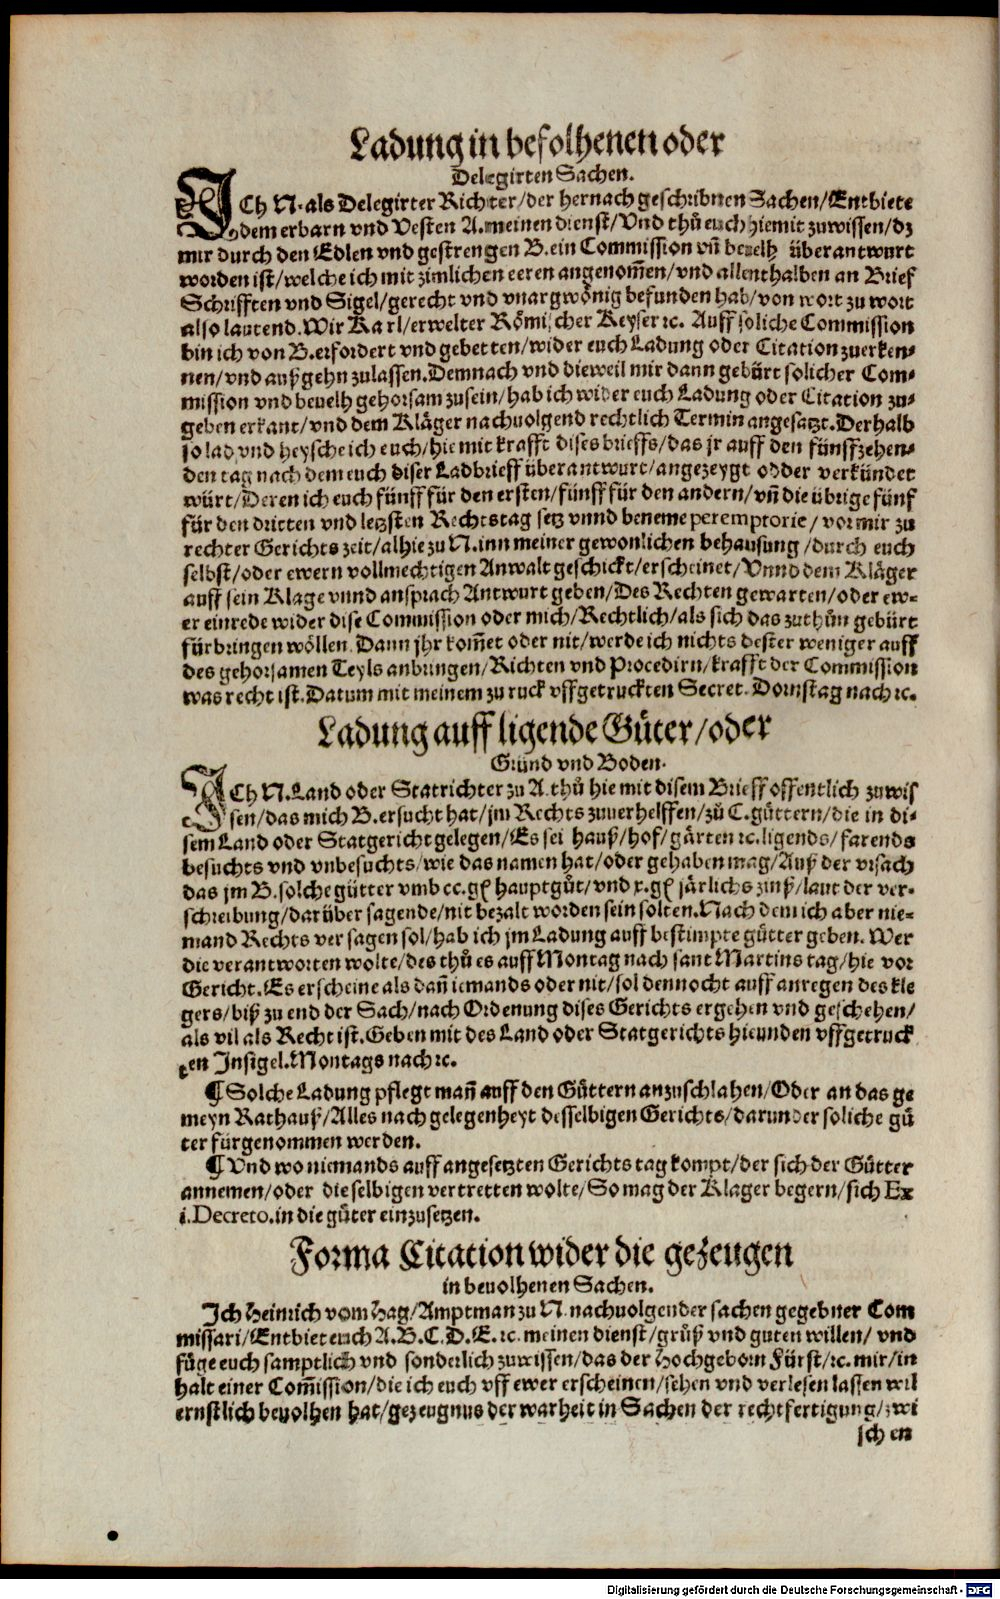 Ladung in befolhenen oder
Delegirten Sachen.
ICh N. als Delegirter Richter/der hernach geschribnen Sachen/Entbiete
dem erbarn vnd Vesten A. meinen dienst/Vnd thů euch hiemit zuwissen/dz
mir durch den Edlen vnd gestrengen B. ein Commission vñ beuelh überantwurt
worden ist/welche ich mit zimlichen eeren angenom̄en/vnd allenthalben an Brief
Schrifften vnd Sigel/gerecht vnd vnargwönig befunden hab/von wort zu wort
also lautend. Wir Karl/erwelter Römischer Keyser ꝛc. Auff soliche Commission
bin ich von B. erfordert vnd gebetten/wider euch Ladung oder Citation zuerken-
nen/vnd außgehn zulassen. Demnach vnd dieweil mir dann gebürt solicher Com-
mission vnd beuelh gehorsam zusein/hab ich wider euch Ladung oder Citation zu-
geben erkant/vnd dem Kläger nachuolgend rechtlich Termin angesatzt. Derhalb
so lad vnd heysche ich euch/hie mit krafft dises brieffs/das jr auff den fünffzehen-
den tag nach dem euch diser Ladbrieff überantwurt/angezeygt odder verkündet
würt/Deren ich euch fünff für den ersten/fünff für den andern/vñ die übrige fünf
für den dritten vnd letzsten Rechtstag setz vnnd beneme peremptorie/vor mir zu
rechter Gerichts zeit/alhie zu N. inn meiner gewonlichen behausung/durch euch
selbst/oder ewern vollmechtigen Anwalt geschickt/erscheinet/Vnnd dem Kläger
auff sein Klage vnnd ansprach Antwurt geben/Des Rechten gewarten/oder ew-
er einrede wider dise Commission oder mich/Rechtlich/als sich das zuthůn gebürt
fürbringen wöllen. Dann jhr kom̄et oder nit/werde ich nichts dester weniger auff
des gehorsamen Teyls anbringen/Richten vnd Procedirn/krafft der Commission
was recht ist. Datum mit meinem zu ruck vffgetruckten Secret. Dornstag nach ꝛc.
Ladung auff ligende Güter/oder
Gründ vnd Boden.
ICh N. Land oder Statrichter zu A. thů hie mit disem Brieff offentlich zuwis
sen/das mich B. ersucht hat/jm Rechts zuuerhelffen/zů C. güttern/die in di-
sem Land oder Statgericht gelegen/Es sei hauß/hof/gärten ꝛc. ligends/farends
besuchts vnd vnbesuchts/wie das namen hat/oder gehaben mag/Auß der vrsach
das jm B. solche gütter vmb cc. gl hauptgůt/vnd x. gl järlichs zinß/laut der ver-
schreibung/darüber sagende/nit bezalt worden sein solten. Nach dem ich aber nie-
mand Rechts versagen sol/hab ich jm Ladung auff bestimpte gütter geben. Wer
die verantworten wolte/des thů es auff Montag nach sant Martins tag/hie vor
Gericht. Es erscheine als dañ iemands oder nit/sol dennocht auff anregen des kle
gers/biß zu end der Sach/nach Ordenung dises Gerichts ergehen vnd geschehen/
als vil als Recht ist. Geben mit des Land oder Statgerichts hieunden vffgetruck
ten Insigel. Montags nach ꝛc.
¶ Solche Ladung pflegt mañ auff den Güttern anzuschlahen/Oder an das ge
meyn Rathauß/Alles nach gelegenheyt desselbigen Gerichts/darunder soliche gü
ter fürgenommen werden.
¶ Vnd wo niemands auff angesetzten Gerichtstag kompt/der sich der Gütter
annemen/oder die selbigen vertretten wolte/So mag der Klager begern/sich Ex
i. Decreto. in die güter einzusetzen.
Forma Citation wider die gezeugen
in beuolhenen Sachen.
Ich Heinrich vom Hag/Amptman zu N. nachuolgender sachen gegebner Com
missari/Entbiet euch A. B. C. D. E. ꝛc. meinen dienst/grůß vnd guten willen/vnd
füge euch samptlich vnd sonderlich zuwissen/das der Hochgeborn Fürst/ꝛc. mir/in
halt einer Com̄ission/die ich euch vff ewer erscheinen/sehen vnd verlesen lassen wil
ernstlich beuolhen hat/gezeugnus der warheit in Sachen der rechtfertigung/zwi
schen
Digitalisierung gefördert durch die Deutsche Forschungsgemeinschaft - DFG